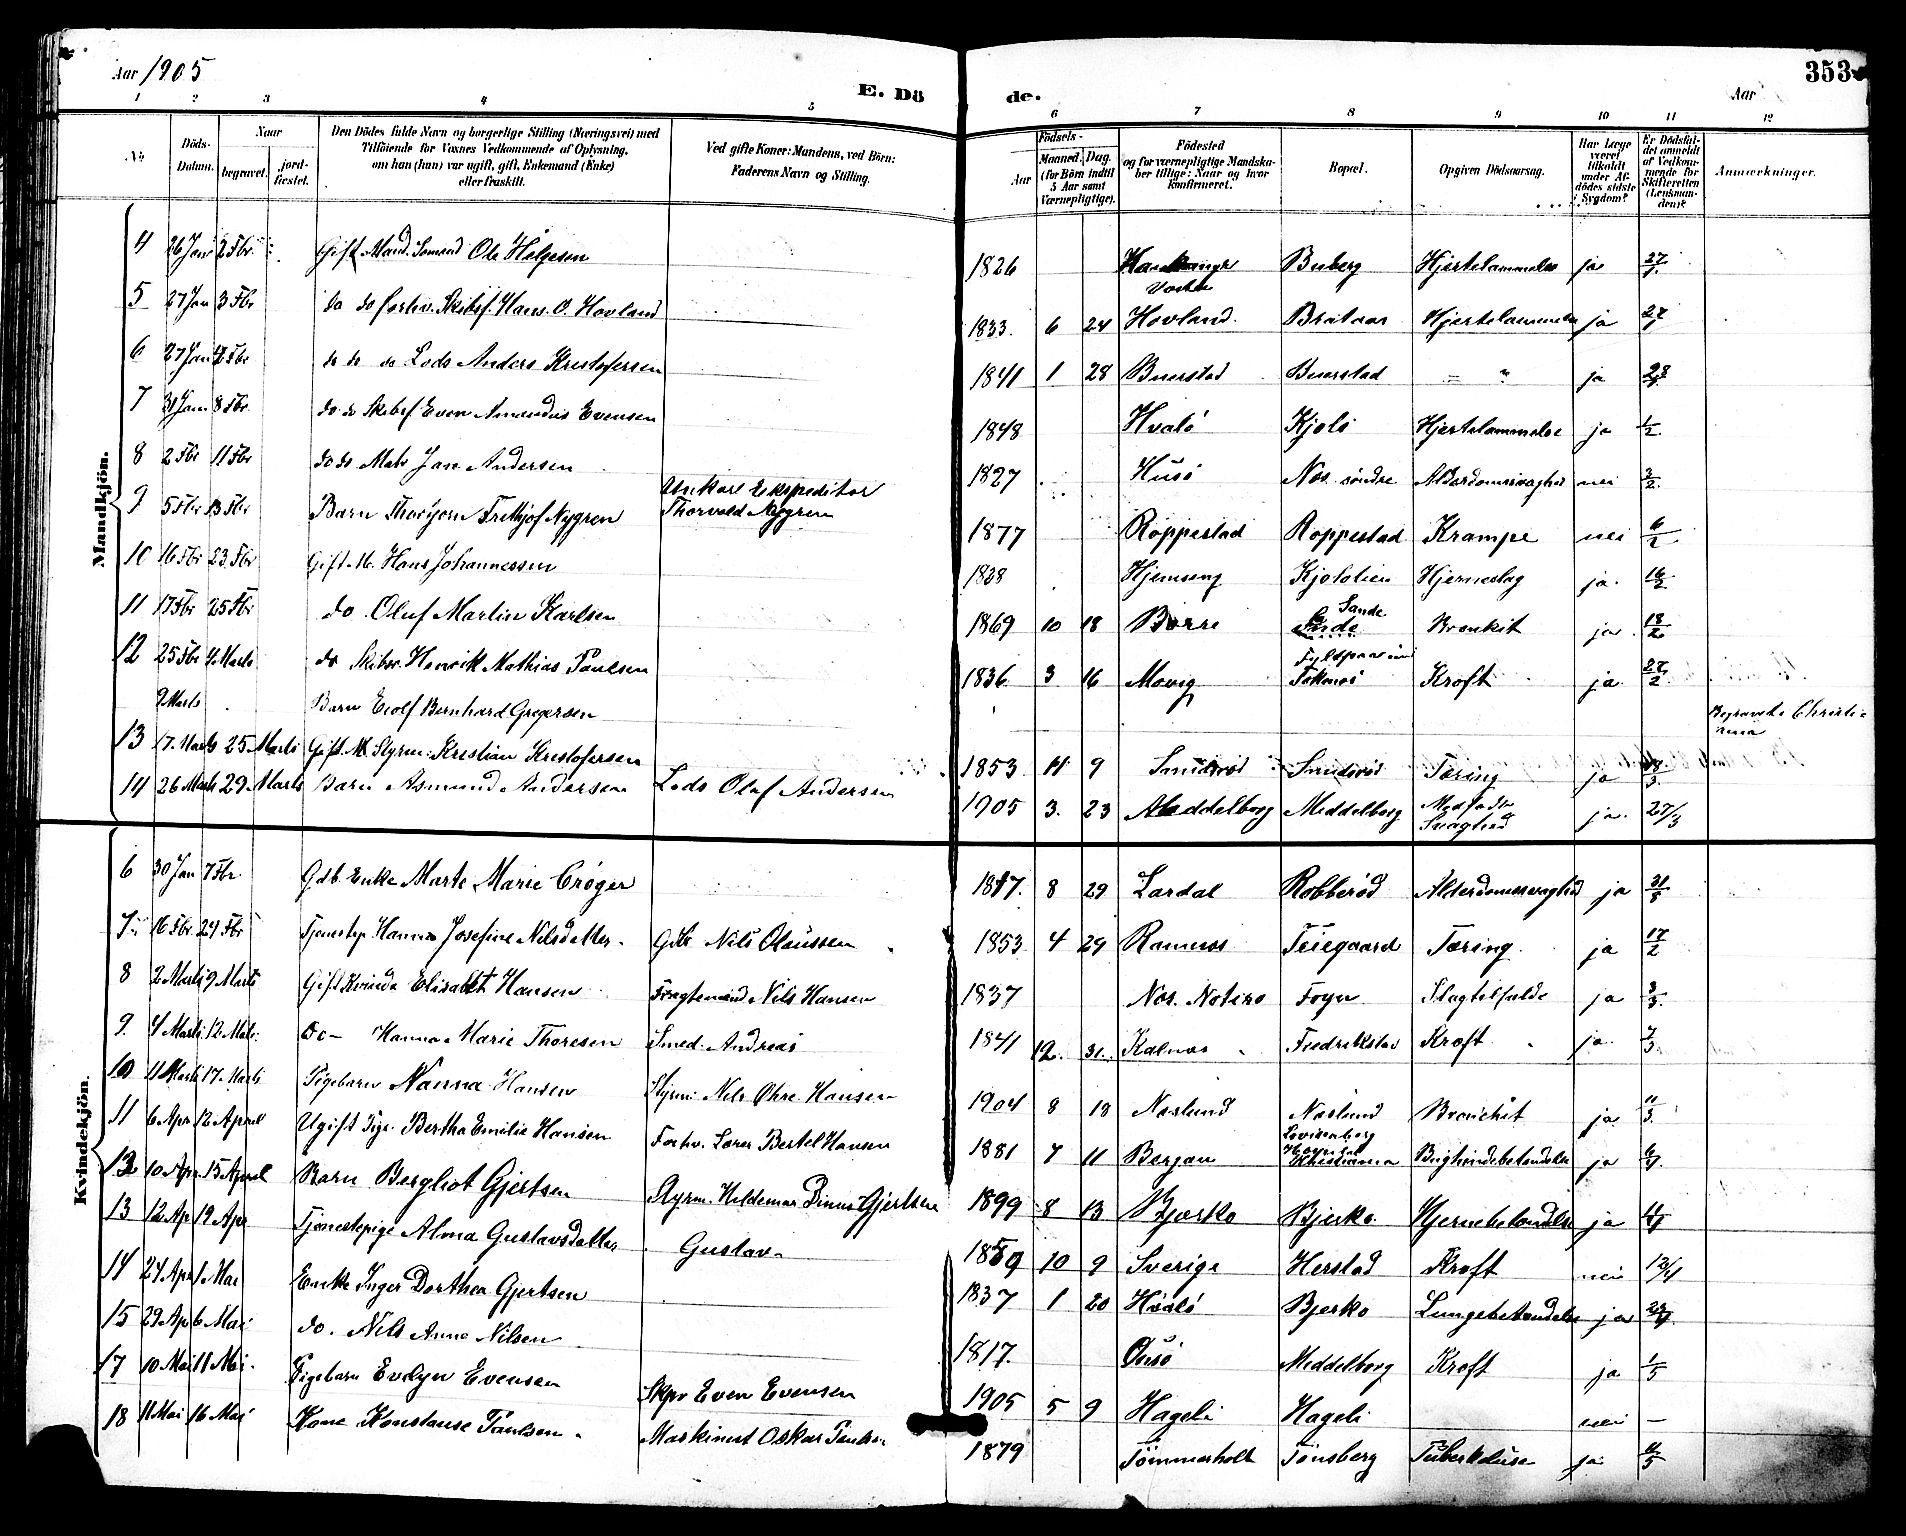 Aar 1905
E. Dö de.
Aar
353
1 2 3 4 5 6 7 8 9 10 11 12
No
Döds-
Datum.
Naar
begravet.
jord-
fæstet.
Den Dödes fulde Navn og borgerlige Stilling (Næringsvei) med
Tilföiende for Voxnes Vedkommende af Oplysning,
om han (hun) var ugift, gift, Enkemand (Enke)
eller fraskilt.
Ved gifte Koner: Mandens, ved Börn:
Faderens Navn og Stilling.
Födsels-
Aar
Maaned. Dag.
(for Börn indtil
5 Aar samt
Værnepligtige).
Födested
og for værnepligtige Mandska-
ber tillige: Naar og hvor
konfirmeret.
Bopæl.
Opgiven Dödsaarsag.
Har Læge
været
tilkaldt
under Af-
dödes sidste
Sygdom?
Er Dödsfal-
det anmeldt
af Vedkom-
mende for
Skifteretten
(Lensman-
den)?
Anmærkninger.
Mandkjön.
4 26 Jan 2 Fbr. Gift Mand. Sømand Ole Helgesen 1826 Buberg Hjertelammelse ja 27/1
5 27 Jan 3 Fbr do do forhv. Skibsf. Hans O. Hovland 1833. 6 24 Hovland. Brataas Hjertelammelse ja 27/1
6 27 Jan Fbr do do do Lods Anders Kristofersen 1841 1 28 Buerstad Buerstad = " ja 28/1
7 31 Jan 8 Fbr do do Skibsf Even Amandus Evensen 1848 Hvalö Kjölö Hjertelammelse ja 1/2
8 2 Fbr 11 Fbr do do Mats Jan Andersen 1827 Husö Nes söndre Alderdomssvaghed nei 3/2
9 5 Fbr 13 Fbr Barn Thorbjorn Frithjof Nygren Ekspeditor
Thorvald Nygren 1877 Roppestad Roppestad Krampe nei 6/2
10 16 Fbr 23 Fbr Gift M. Hans Johannessen 1838 Hjemseng Hjerneslag ja. 16/2
11 17 Fbr 25 Fbr do. Oluf Martin Karlsen 1869 10 18 Borre Sande Bronkit ja. 18/2
12 25 Fbr 4 Marts do Skibsr. Henrik Mathias Paulsen 1836 3 16 Movig Kræft ja 27/2
9 Marts Barn Eiolf Bernhard Gregersen Begravet i Christi-
ania
13 17. Marts 25 Marts Gift M Styrm: Kristian Kristofersen 1853 11 9 Smidsröd Smidsröd Tæring ja 18/3.
14 26 Marts 29 Marts Barn Asmund Andersen Lods Olaf Andersen 1905 3. 23 Meddelborg Meddelborg Medfødt
Svaghed ja. 27/3
Kvindekjön.
6 30 Jan 7 Fbr. Gdb. Enke Marte Marie Crøger 1817. 8 29 Lardal Robberöd Alderdomssvaghed ja 31/1
7 16 Fbr. 24 Fbr Tjenestep Hanna Josefine Nilsdatter Gdb Nils Olaussen 1853 4 29 Ramnes Teiegaard Tæring. ja 17/2
8 2 Marts 9 Marts Gift Kvinde Elisabet Hansen Fragtemand Nils Hansen 1837 Nes. Notero Foyn Slagtilfælde ja 3/3
9. 4 Marts 12 Marts Do – Hanna Marie Thoresen Smed. Andreas 1841 12. 31. Kalnes Fredrikstad Kræft ja. 7/3
10 11 Marts 17 Marts Pigebarn Nanna Hansen Styrm: Nils Ohre Hansen 1904 8 18 Neslund Neslund Bronchit ja 11/3.
11 6 Apr 12 April Ugift Pige. Bertha Emilie Hansen Forhv. Lærer Bertel Hansen 1881 7 11 Berjan Lovisenberg
Christiania Bughindebetændelse ja 6/4
12 10 Apr. 15 April Barn Bergliot Gjertsen Styrm. Hildemar Dinus Gjertsen 1899 8 13 Bjerko Bjerko. Hjernebetændelse ja 11/4
13 12 Ap 19 Apr Tjenestepige Alma Gustavsdatter Gustav 1889 10 9 Sverige Herstad Kræft nei 12/4
14 24 Apr 1 Mai Enke Inger Dorthea Gjertsen 1837 1 20 Hvalö Bjerko Lungebetændelse ja 24/4
15 29 Ap 6 Mai do. Nils Anne Nilsen 1817. Meddelborg Kræft ja 1/5
17 10 Mai 11 Mai. Pigebarn Evelyn Evensen Skpr Even Evensen 1905 5 9 Hageli Hageli nei –
18 11 Mai 16 Mai Kone Konstanse Paulsen Maskinist Oskar Paulsen 1879 Tømmerholt Tønsberg Tuberkulose ja 11/5